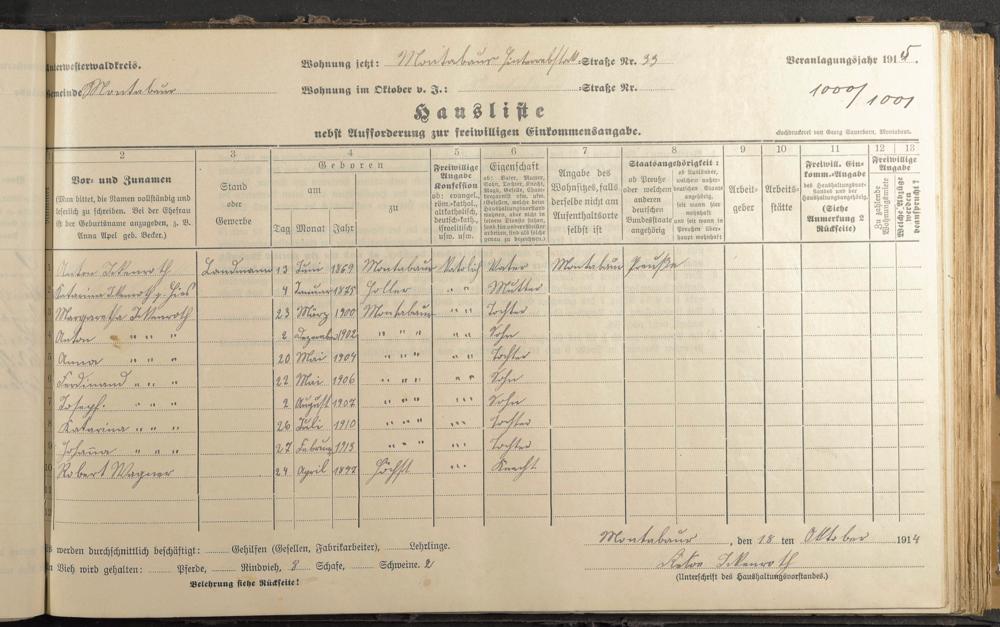 Unterwesterwaldkreis.
Wohnung jetzt: Montabaur -Straße Nr. 33
Veranlagungsjahr 1915.
Gemeinde Montabaur
Wohnung im Oktober v. J.: -Straße Nr.
1000/1001
Hausliste
nebst Aufforderung zur freiwilligen Einkommensangabe.
Buchdruckerei von Georg Sauerborn, Montabaur.
1 2 3 4 5 6 7 8 9 10 11 12 13
Vor- und Zunamen
(Man bittet, die Namen vollständig und
leserlich zu schreiben. Bei der Ehefrau
ist der Geburtsname anzugeben, z. B.
Anna Apel geb. Becker.)
Stand
oder
Gewerbe
Geboren
am
zu
Tag Monat Jahr
Freiwillige
Angabe
Konfession
ob: evangel.,
röm.-kathol.,
altkatholisch,
deutsch-kath.,
israelitisch
usw. usw.
Eigenschaft
ob: Vater, Mutter,
Sohn, Tochter, Knecht,
Magd, Gehilfe,
Angabe des
Wohnsitzes, falls
derselbe nicht am
Aufenthaltsorte
selbst ist
Staatsangehörigkeit:
ob Preuße
oder welchem
anderen
deutschen
Bundesstaate
angehörig
ob Ausländer,
welchem außer-
deutschen Staate
angehörig,
seit wann hier
wohnhaft
und seit wann in
Preußen über-
haupt wohnhaft
Arbeit-
geber
Arbeits-
stätte
Freiwill. Ein-
komm.-Angabe
des Haushaltungsvor-
standes und der
Haushaltungsangehörig.
(Siehe
Anmerkung 2
Rückseite)
Freiwillige
Angabe
Zu zahlende
Wohnungsmiete
Welche Abzüge
werden
beansprucht?
1 Anton Ickenroth Landmann 13 Juni 1869 Montabaur Katolich Vater Montabaur Preuße
2 Katarina Ickenroth g. Hies 4 Januar 1875 Holler " " Mutter
3 Margaretha Ickenroth 23 März 1900 Montabaur " " Tochter
4 Anton " " " 2 Dezember 1902 " " " " " Sohn
5 Anna " " " 20 Mai 1904 " " " " " Tochter
6 Ferdinand " " " 22 Mai 1906 " " " " " Sohn
7 Joseph " " " 2 August 1907 " " " " " Sohn
8 Katarina " " " 26 Juli 1910 " " " " " Tochter
9 Johanna " " " 27 Februar 1913 " " " " " Tochter
10 Robert Wagner 24 April 1897 Höchst " " " Knecht
11
12
Es werden durchschnittlich beschäftigt: Gehilfen (Gesellen, Fabrikarbeiter), Lehrlinge.
An Vieh wird gehalten: Pferde, Rindvieh, 8 Schafe, Schweine. 2
Belehrung siehe Rückseite!
Montabaur, den 18 ten Oktober 1914
Anton Ickenroth
(Unterschrift des Haushaltungsvorstandes.)